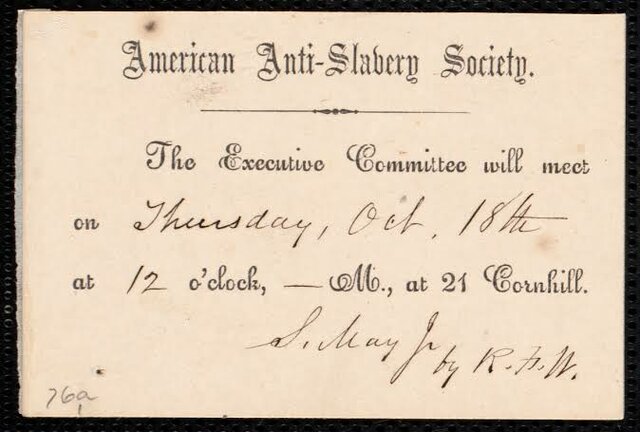 American Anti-Slavery Society.
The Executive Committee will meet
on Thursday, Oct. 18th
at 12 o'clock, — M., at 21 Cornhill.
S. May Jr
by R. F. W.
76a